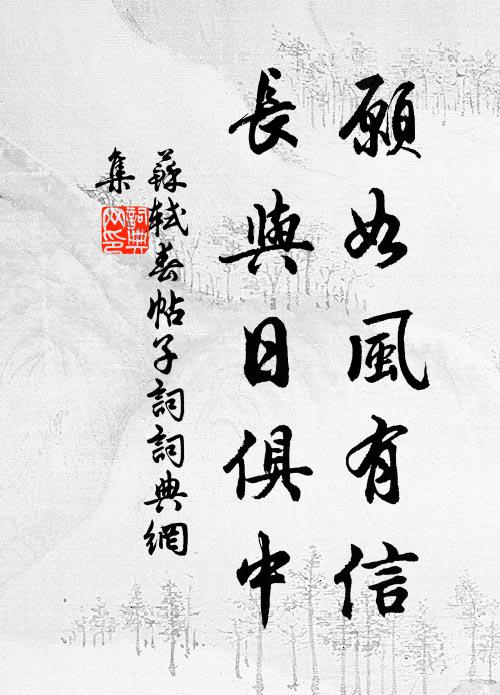 願如風有信
長與日俱中
蘇軾春帖子詞詞典網
集
詞典
网印